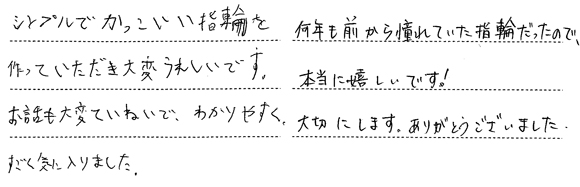 シンプルでかっこいい指輪を
作っていただき大変うれしいです。
お話も大変ていねいで、わかりやすく、
すごく気に入りました。
何年も前から憧れていた指輪だったので、
本当に嬉しいです!
大切にします。ありがとうございました.